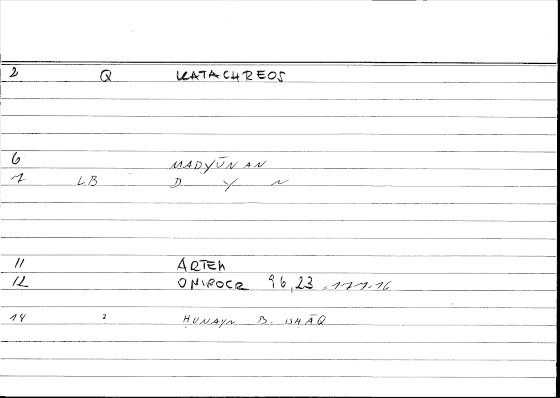 2 Q KATACHREOS
6 MADYŪNAN
7 LB D Y N
11 ARTEM
12 ONIROCR 96,23 - 177.16
14 2 ḤUNAYN B. ISḤĀQ